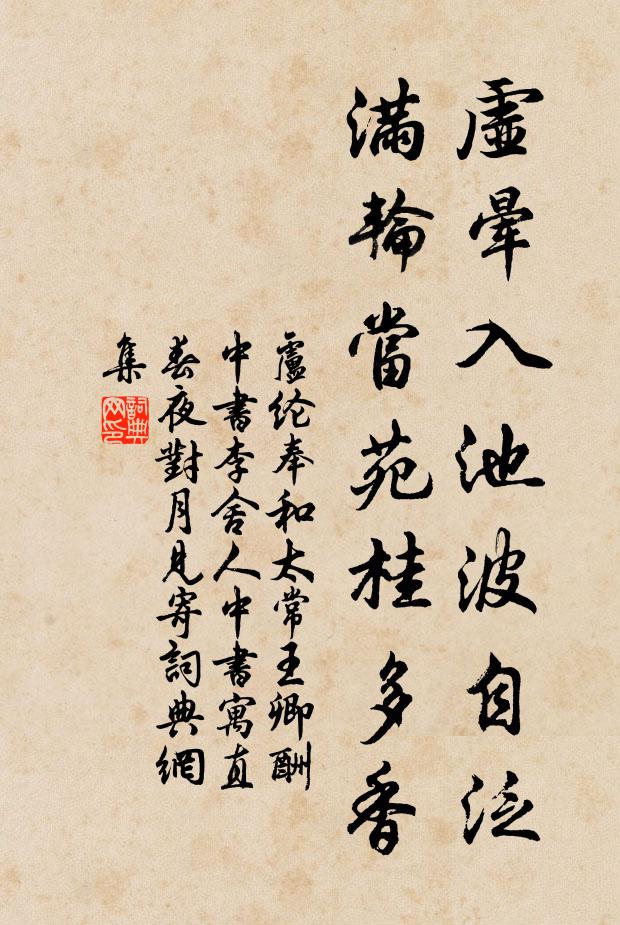 虛暈入池波自泛
滿輪當苑桂多香
盧纶奉和太常王卿酬
中書李舍人中書寓直
春夜對月見寄詞典網
集
詞典
网印